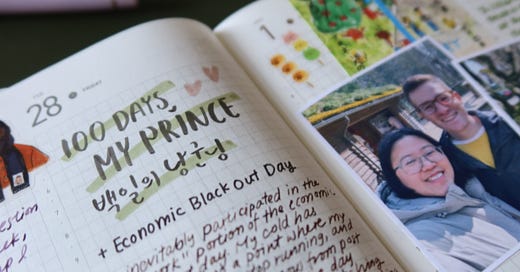 28 FRIDAY
100 DAYS,
MY PRINCE
백일의 낭군님
+ Economic Black Out Day
inevitably participated in the
work" portion of the economic
day. My cold has
a point where my
stop running, and
from post
1